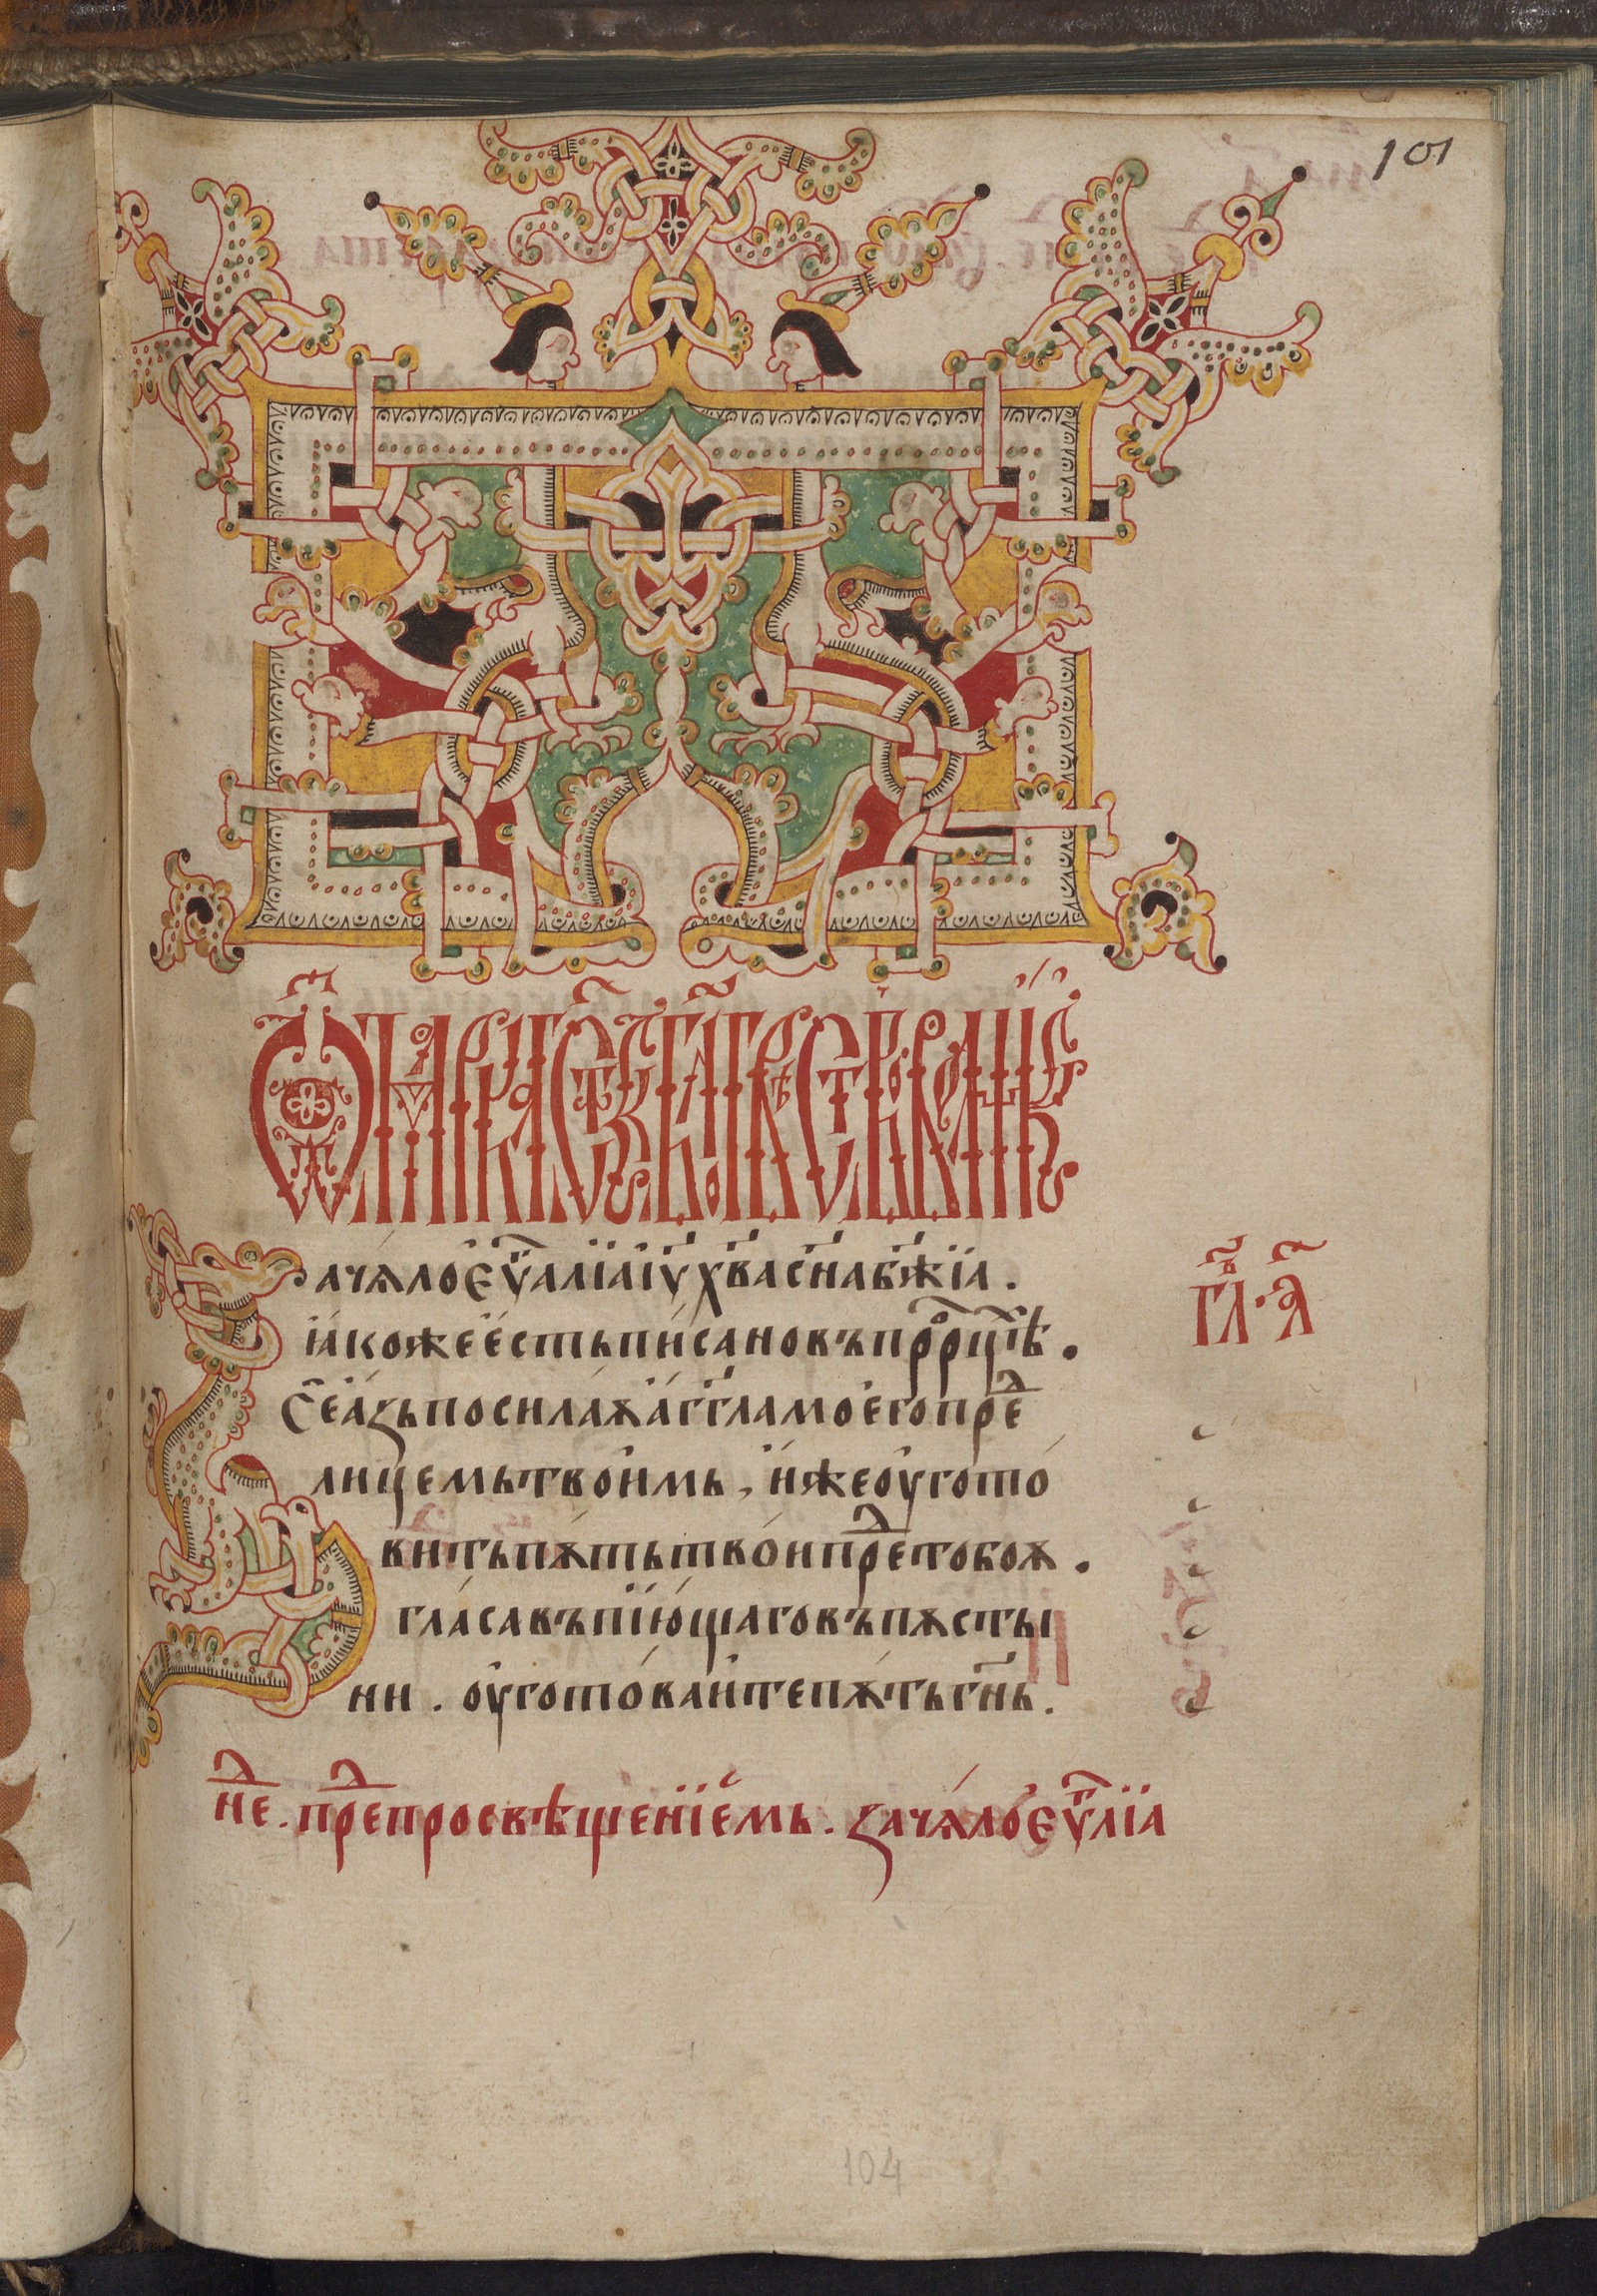 101
Ѿ марка ст҃ое бл҃говѣствованїе
Зачѧло еѵ҃аліа іѵ҃ х҃ва сн҃а бж҃їа.
гл҃в. а҃
ꙗкоже есть писано въ прⷪ҇рцѣ.
Се азъ посилаѫ агг҃ла моего прⷣе
лицемь твоимь, иже оугото
вить пѫть твои прⷣе тобоѫ.
гласа въпїющаго въ пѫсты
ни. оуготоваите пѫть гн҃ь.
нⷣе. прⷣе просвѣщенїемь. зачѧло еѵ҃лїа
104